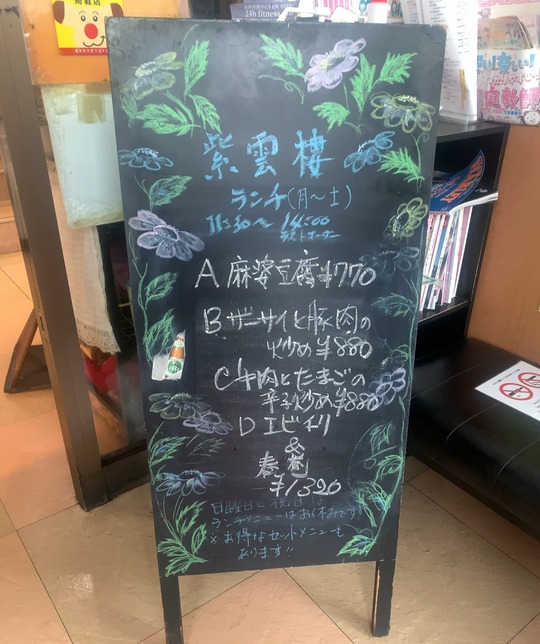 掲載店
24h fitness
紫雲楼
ランチ(月〜土)
11:30〜14:00
ラストオーダー
A 麻婆豆腐 ¥770
B ザーサイと豚肉の
炒め ¥880
C 牛肉とたまごの
辛子炒め ¥880
D エビチリ
&
春巻
¥1320
日曜日と祝日
ランチメニューはお休みです
※お得なセットメニューも
あります!!